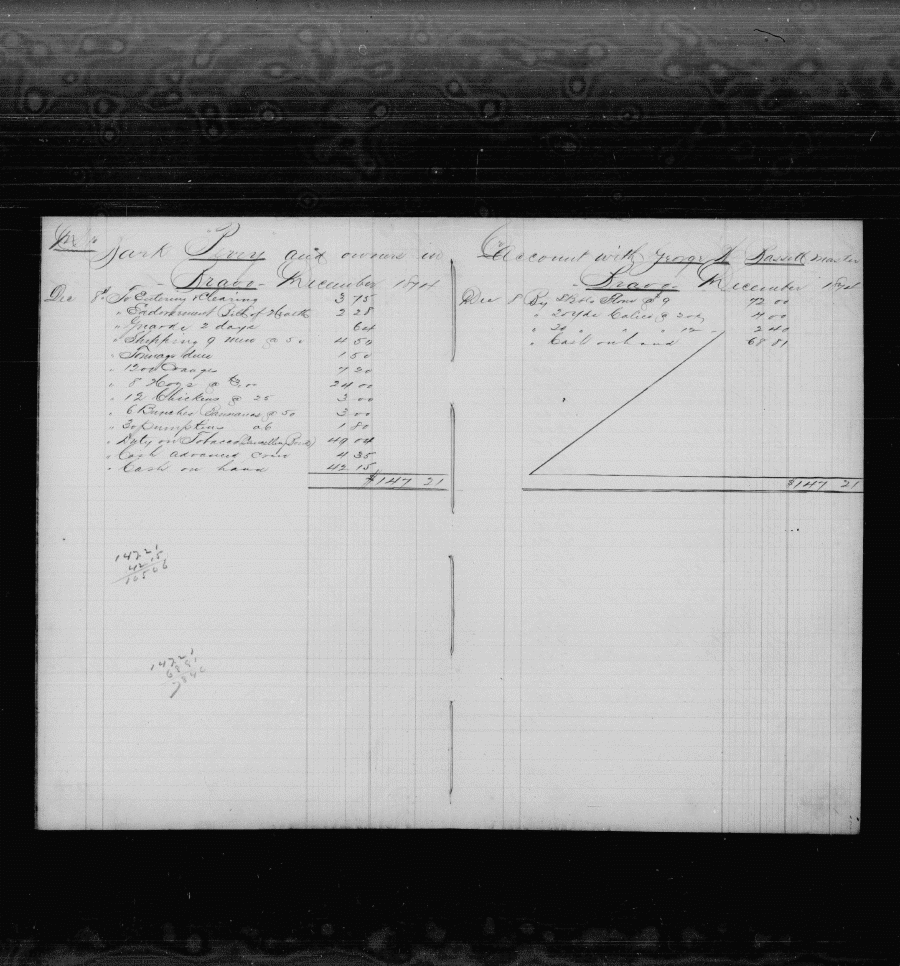 Dr
Bark Percy and owners in
Account with George H Bassett Master
- Bravo - December 1874
- Bravo - December 1874
Dec 8th To Entering & Clearing 3 75
" Endorsement Bill of Health 2 28
" Guards 2 days 64
" Shipping 9 men @ 50 4 50
" Tonnage dues 1 50
" 1200 Oranges 7 20
" 8 Hogs @ 3.00 24 00
" 12 Chickens @ 25 3 00
" 6 Bunches Bananas @ 50 3 00
" 30 Pumpkins @ 6 1 80
" Duty on Tobacco 49 04
" Cash advanced crew 4 35
" Cash on hand 42 15
$147 21
Dec 8 By 8 Bbls Flour @ 9 72 00
" 20 Yds Calico @ 20¢ 4 00
" 20 " " " 12 - 2 40
" Cash on hand 68 81
$147 21
147 21
42 15
105 06
147 21
68 81
78 40